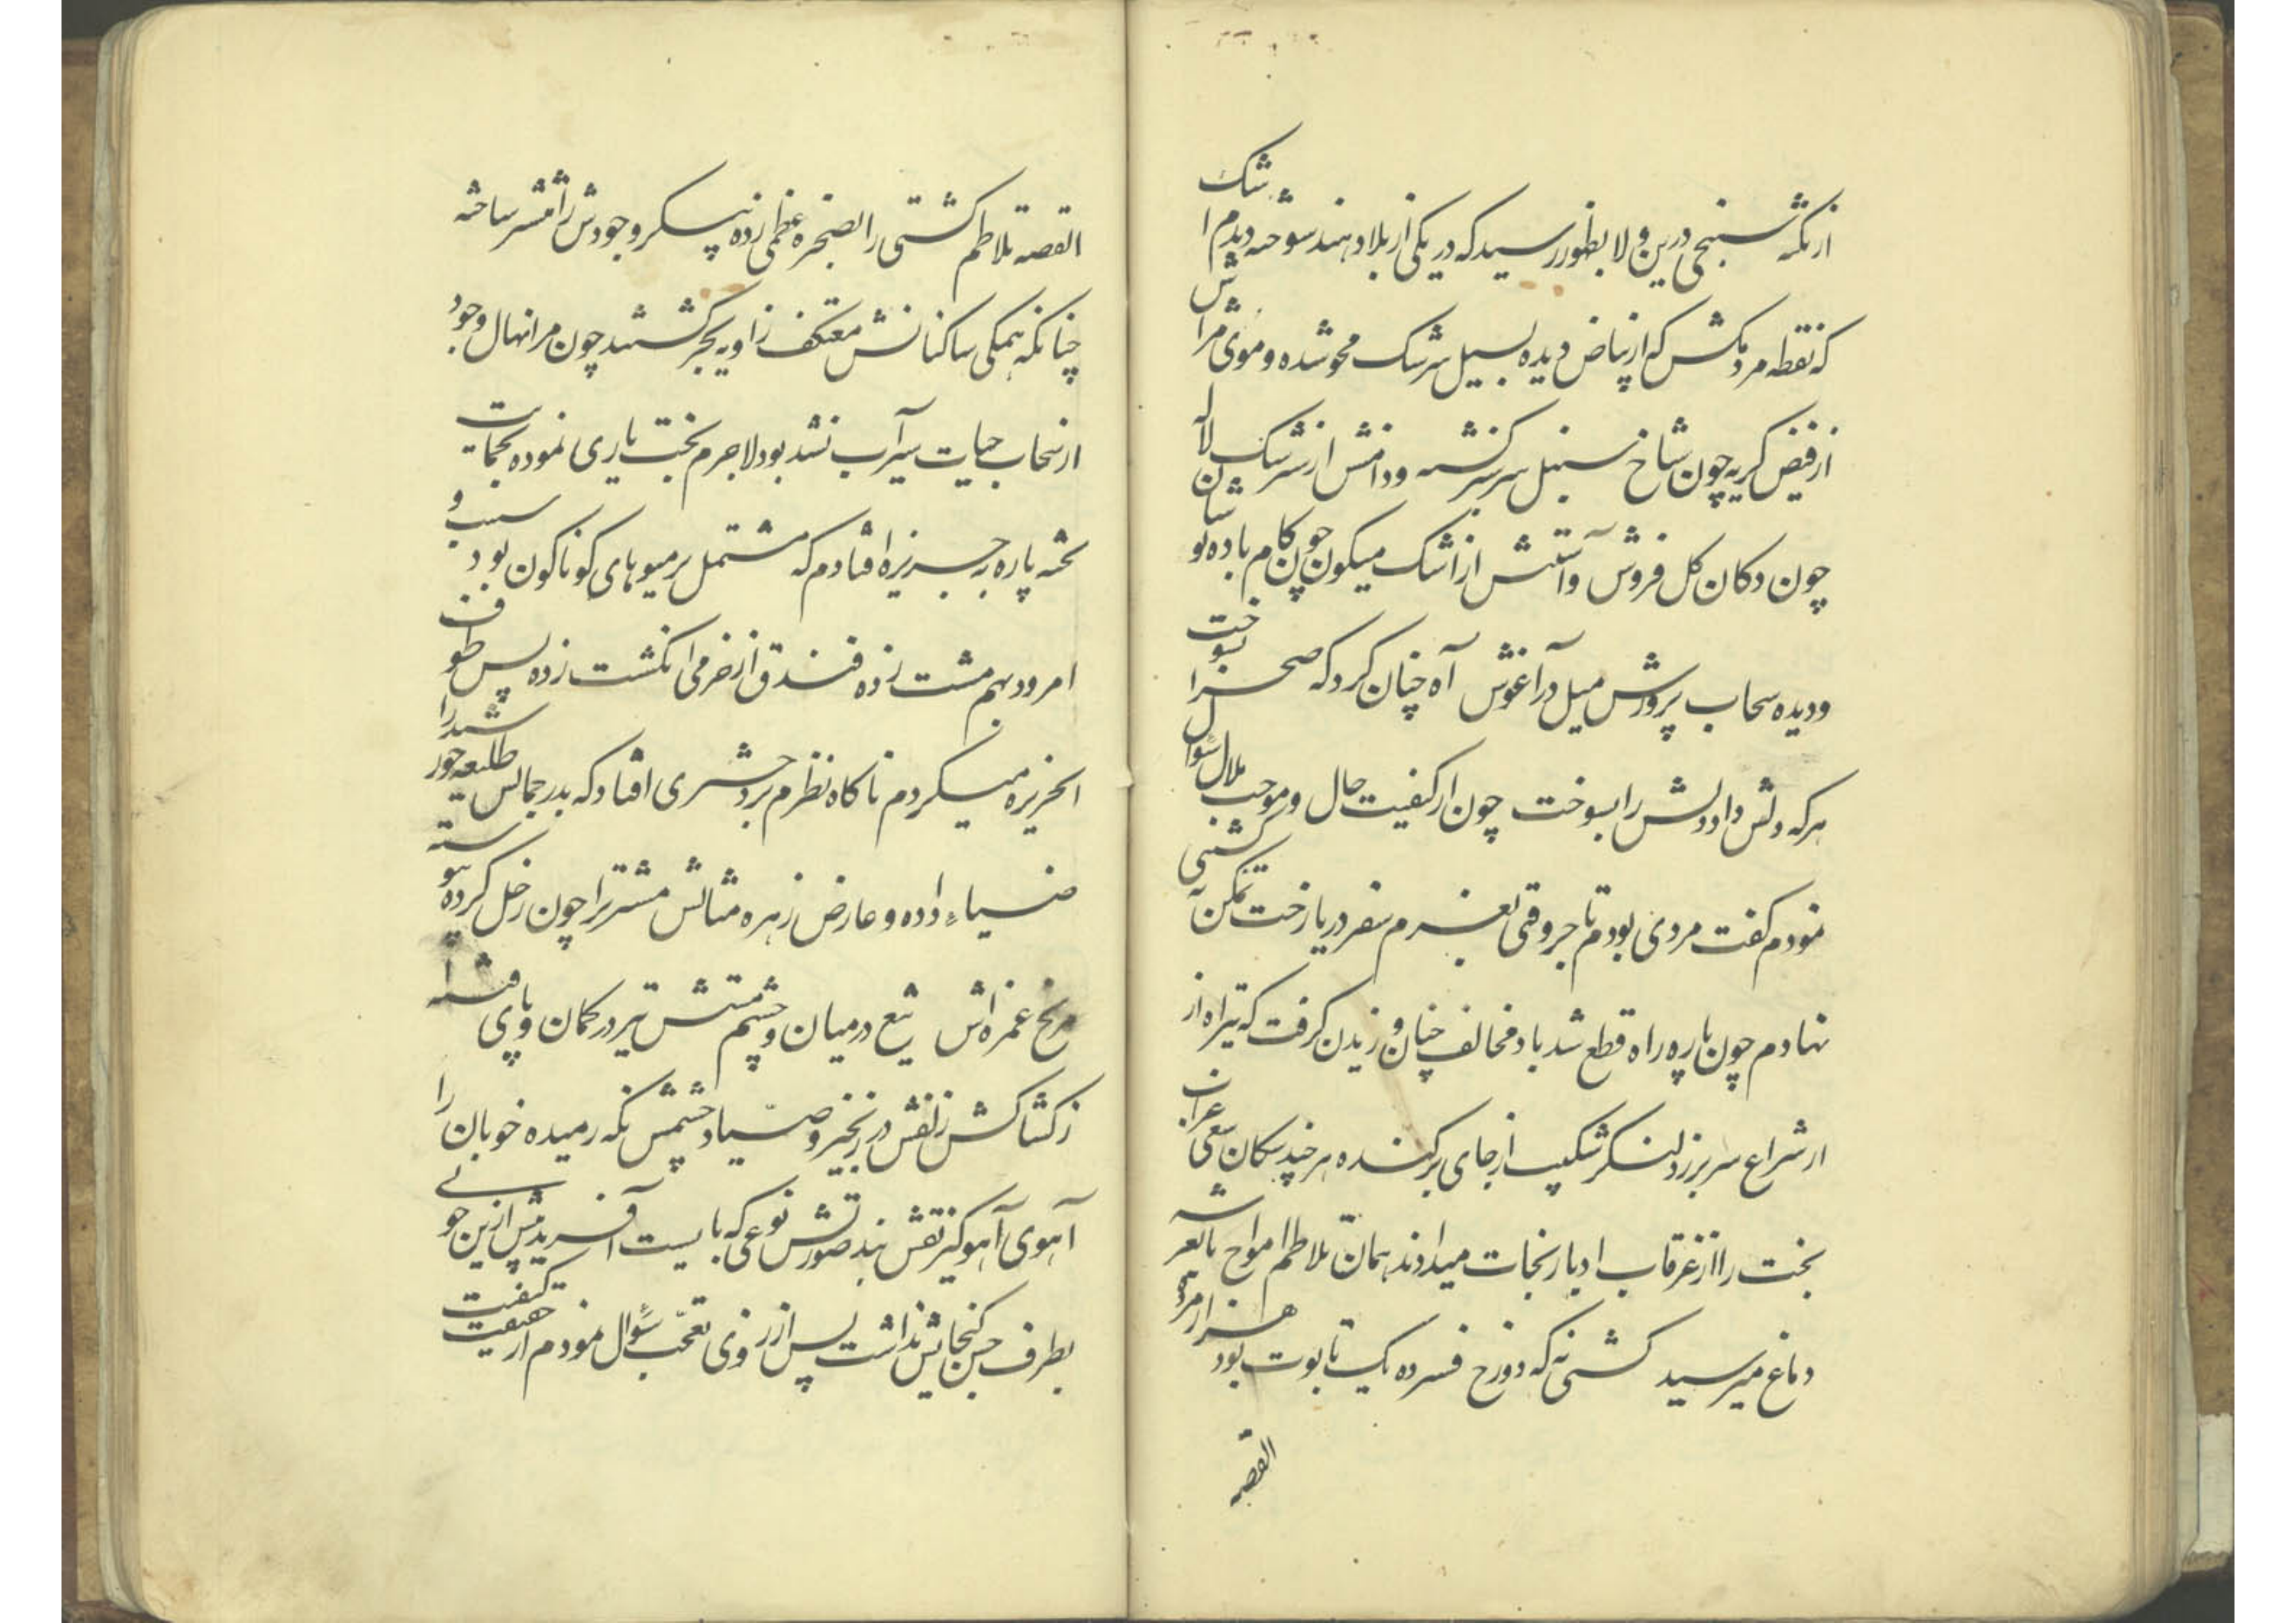 از نکته سنجی درین ولا بظور رسید که در یکی از بلاد هند سوخته دیدم اشک
که نقطه مردمکش که از بیاض دیده بسیل سرشک محو شده و موی مژاش
از فیض گریه چون شاخ سنبل سرسبز گشته و دامنش از سرشک لاله
چون دکان گل فروش و آستینش از اشک میگون چون کام باده نوشان
و دیده سحاب پرورش میل در آغوش آه چنان کرد که صحرا بسوخت
هر که دلش داد دلش را بسوخت چون از کیفیت حال و موجب ملال سؤال
نمودم گفت مردی بودم تاجر وقتی بعزم سفر دریا رخت تمکن به کشتی
نهادم چون پاره راه قطع شد باد مخالف چنان وزیدن گرفت که تیر آه از
از شراع سر بر زد لنگر شکیب از جای برکنده هر چند سکان سعی غراب
بخت را از غرقاب ادبار نجات میدادند همان تلاطم امواج باشعه
دماغ میرسید کشتی نه که دوزخ فسرده یک تابوت بود هزار مرده
القصه
القصه تلاطم کشتی را بصخره عظمی زده پیکر وجودش را منتشر ساخته
چنانکه همگی ساکنانش معتکف زاویه بحر گشتند چون مرا نهال وجود
از سحاب حیات سیراب نشد بود لاجرم بخت یاری نموده بحمایت
تخته پاره به جزیره افتادم که مشتمل بر میوهای گوناگون بود سیب و
امرود بهم مشت زده فندق از خرمی انگشت زده پس طوف
الجزیره میکردم ناگاه نظرم بر دختری افتاد که بدر جمالش طلیعه خورشید را
ضیاء داده و عارض زهره مثالش مشتریرا چون زحل کرده پیوسته
مریخ غمزه اش تیغ در میان و چشم مستش تیر در کمان و پای
ز کشاکش زلفش در زنجیر و صیاد چشمش نگه رمیده خوبان را
آهوی آهوگیر نقش بند صورتش نوعی که بایست آفرید پیش ازین خوبی
بطرف حسن گنجایش نداشت پس از روی تعجب سؤال نمودم از حقیقت کیفیت